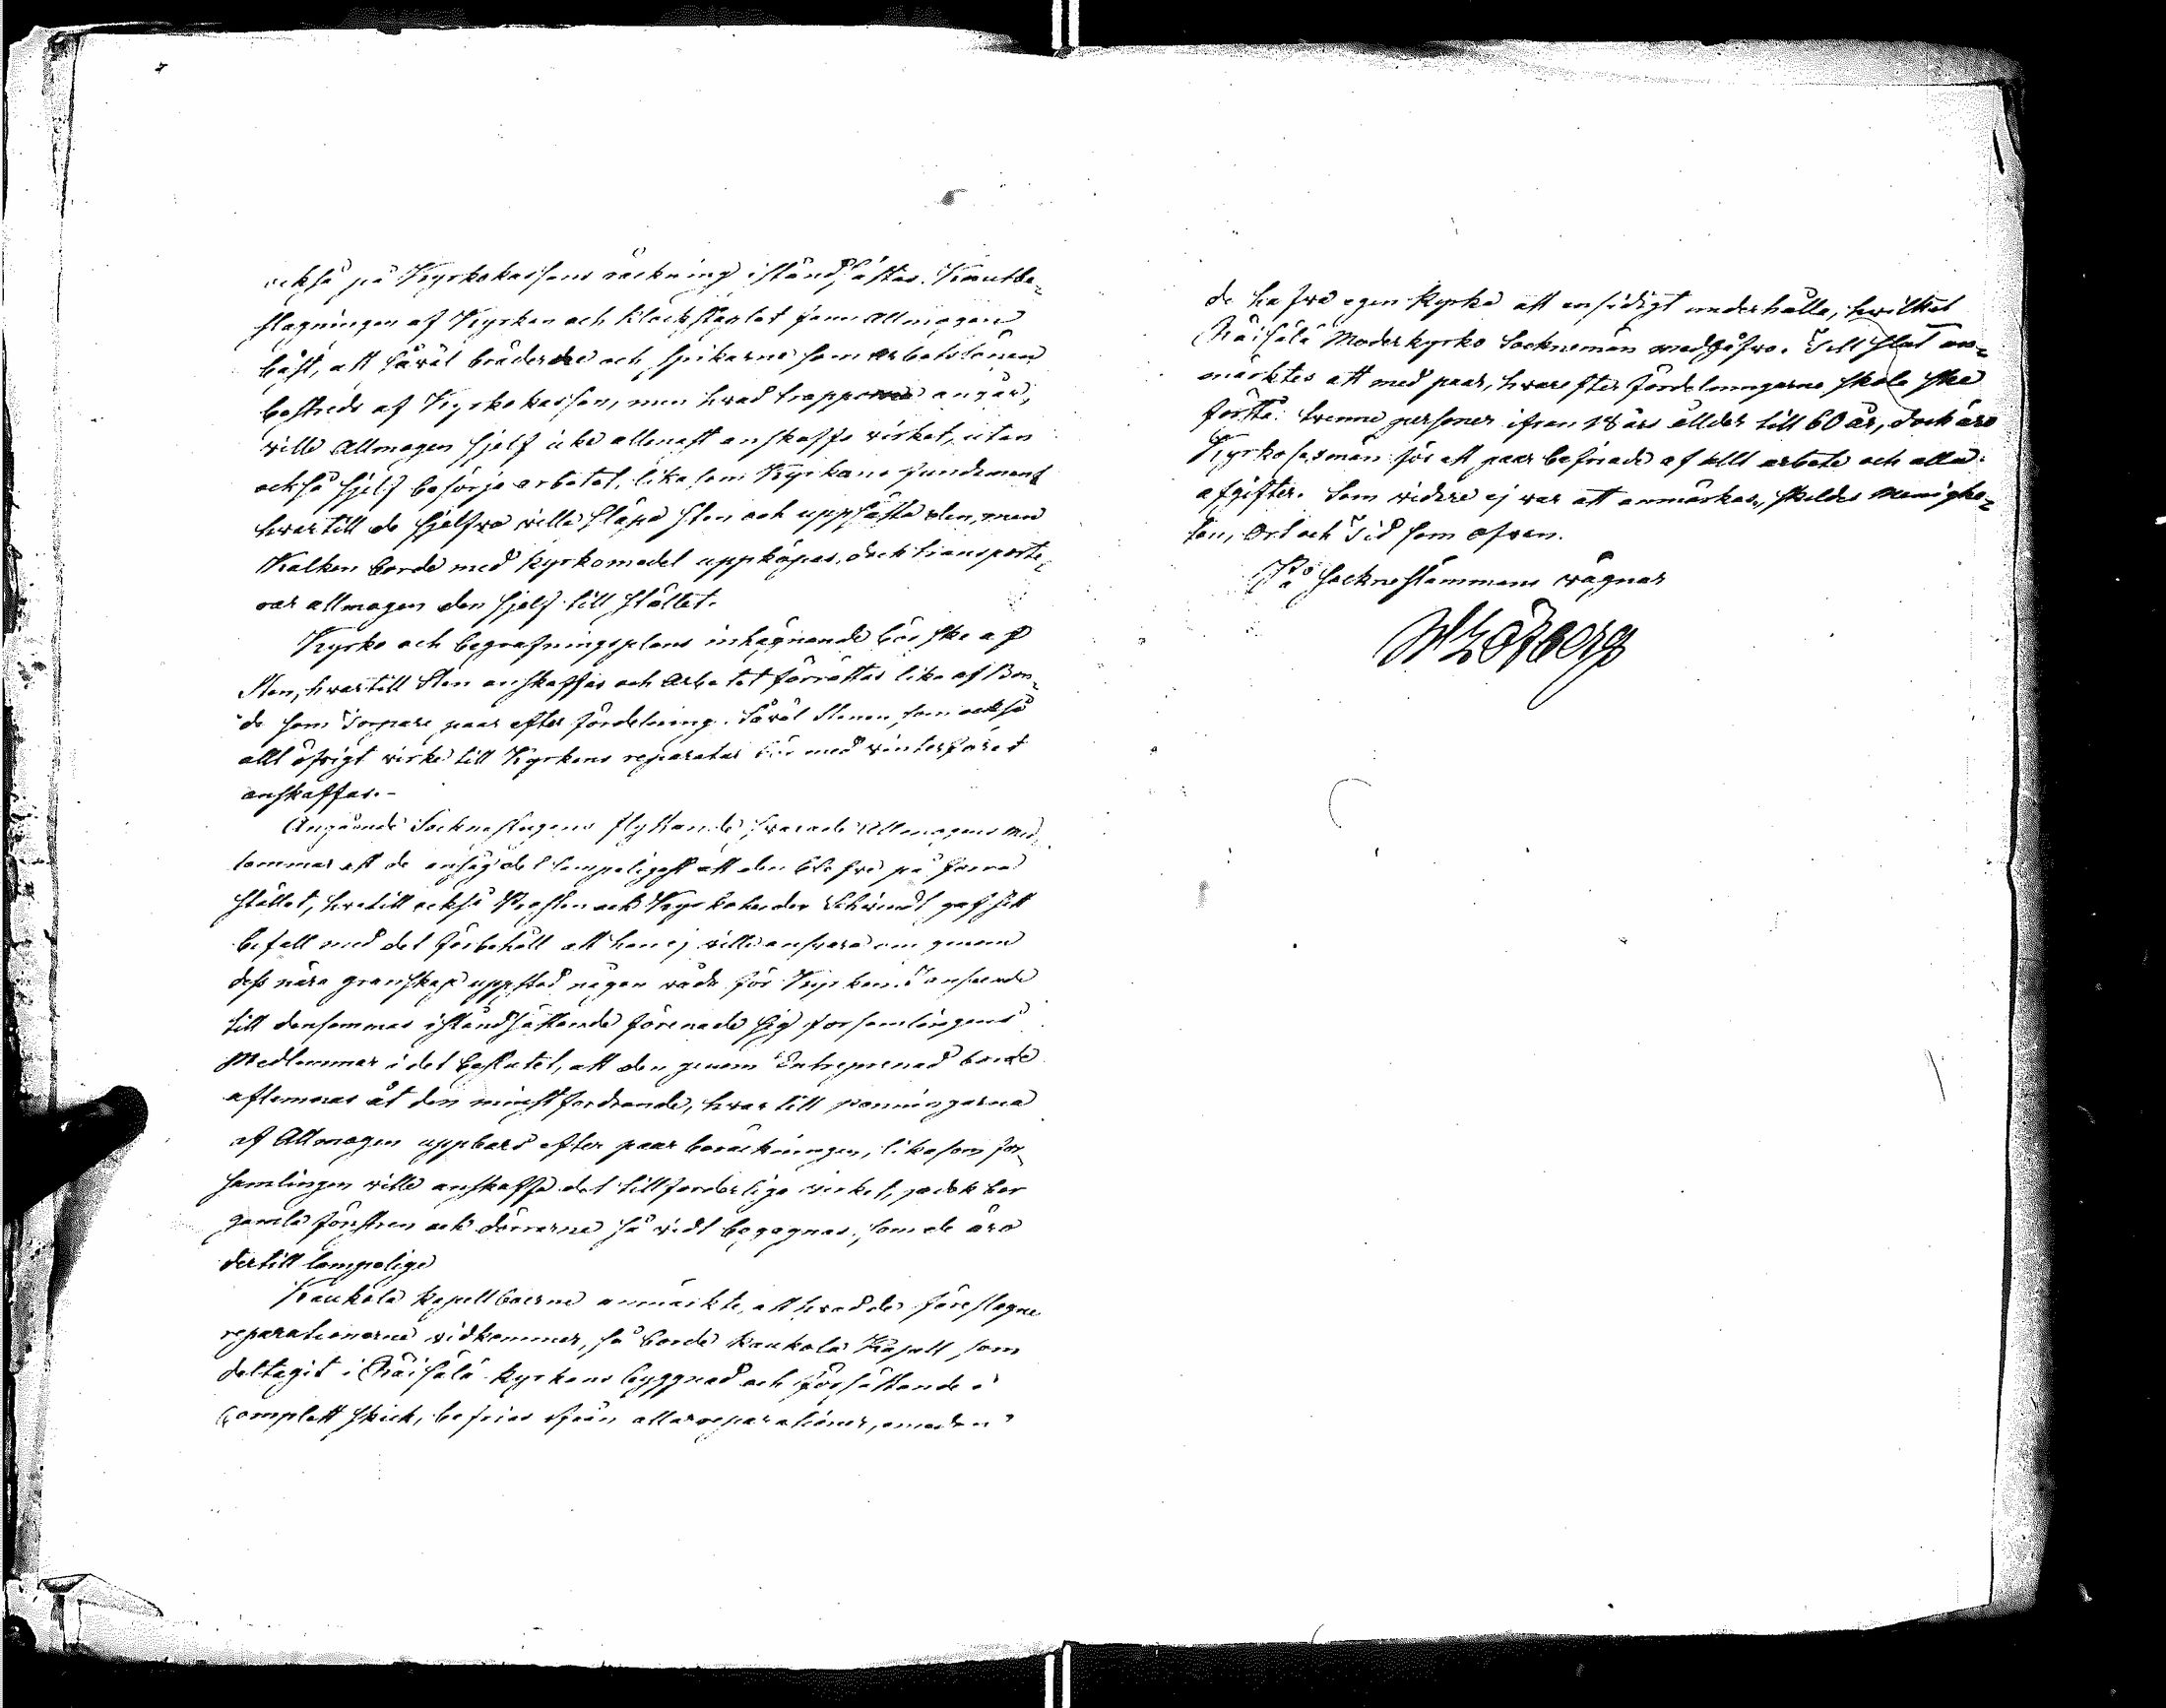 också på Kyrkokassans räckning iståndsättas. Brautbe-
slagningen af Kyrkan och Klockstaplet fann Allmogen
bäst, att såväl bräderne och spikarne som arbetslönen
bestreds af Kyrkokassan, men hvad trapporne angår,
ville Allmogen sjelf icke allenast anskaffa virket, utan
också sjelf besörja arbetet, lika som Kyrkans fundament
hvartill de sjelfva ville släpa sten och uppsätta den, men
Kalken borde med kyrkomedel uppköpas, dock transporte-
rar allmogen den sjelf till stället.
Kyrko och begrafningsplans inhägnande bör ske af
Sten, hvartill Sten anskaffas och Arbetet förrättas lika af Bon-
de som Torpare paar efter fördelning. Såväl Stenen, som också
allt öfrigt virke till Kyrkans reparatur bör med vinterföret
anskaffas.-
Angående Socknestugans flyttande, svarade Allmogens Med-
lemmar att de ansåg det lämpeligast att den blefve på förra
stället, hvartill också Prosten och Kyrkoherden Schwindt gaf sitt
bifall med det förbehåll att han ej ville ansvara om genom
dess nära granskap uppstod någon våda för Kyrkan. I anseende
till densammas iståndsättande förenade sig församlingens
Medlemmar i det beslutet, att den genom Entreprenad borde
aflemnas åt den minstfordrande, hvartill penningarna
af Allmogen uppbärs efter paar beräckningen, likasom för-
samlingen ville anskaffa det tillförderliga virket, och bör
gamla fönstren och dörrarne så vidt begagnas, som de äro
dertill lämpelige
Kaukola kapellboerne anmärkte, att hvad de föreslagne
reparationerne vidkommer, så borde Kaukola Kapell som
deltagit i Räisälä kyrkans byggnad och försättande i
complett skick, befrias ifrån alla reparationer, emedan
de hafva egen kyrka att ensidigt underhålla, hvilket
Räisälä Moderkyrko Sockneman medgåfvo. Till slut an-
märktes att med paar, hvarefter fördelningarne skola ske
förstå: tvenne personer ifrån 18 års ållder till 60 år, dock äro
Kyrkosexmän för ett paar befriade af allt arbete och alla
afgifter. Som vidare ej var att anmärkas, skildes Menighe-
ten, Ort och Tid som ofvan.
På Socknestämmans vägnar